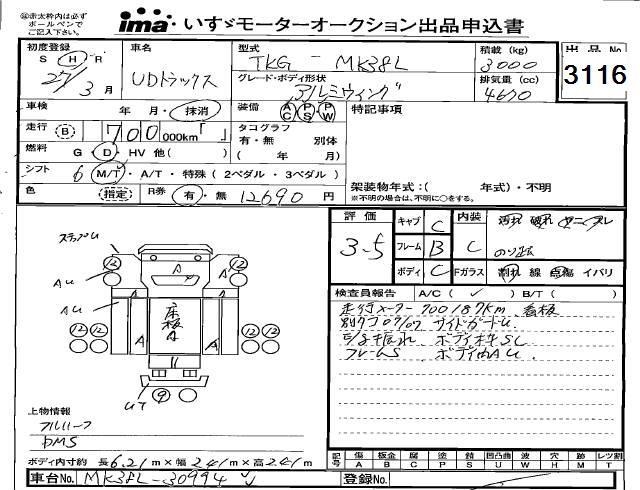 ㊟赤太枠内は必ず
ボールペンで
ご記入下さい。
ima いすゞモーターオークション出品申込書
初度登録 車名 型式 積載 (kg) 出品No
S H R UDトラックス TKG - MK38L 3000 3116
27/3月 グレード・ボディ形状 排気量 (cc)
アルミウィング 4670
車検 年・月・抹消 装備 AC PS PW 特記事項
走行 B 700 000km「 」 タコグラフ
有・無 別体
燃料 G・D・HV 他( ) ( 年 月)
シフト 6 M/T・A/T・特殊 (2ペダル・3ペダル) 架装物年式:( 年式)・不明
色 指定 R券 有・無 12690 円 ※不明の場合は、不明に○をする。
評価 キャブ C 内装
3.5 フレーム B C
ボディ C Fガラス 割れ 線 点傷 イバリ
検査員報告 A/C( ✓ ) B/T( )
走行メーター 700187km 看板
サイドガードU
ボディ内AU
フレームS
AU
AU
12 12
12 12
A A
床板
A
A A
9
UT
上物情報
フルハーフ
DMS
ボディ内寸約 長6.21m×幅2.41m×高2.41m
記号 傷 板金 腐 塗 錆 凹凸曲 波 穴 目 レツ割
A B C P S U W H M T
車台No. MK38L-30994 登録No.